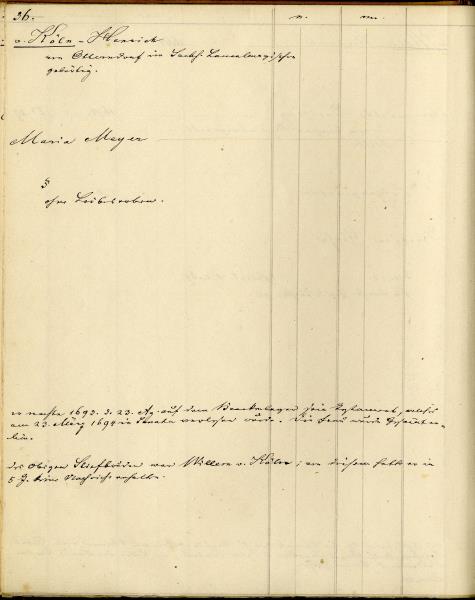 36.
n. m.
v. Köln - Henrich
von Otterndorf im Sachs. Lauenburgischen
gebürtig.
Maria Meyer
§
ohne Leibeserben.
er machte 1693. d. 23. Ag. auf dem Krankenlager sein Testament, welches
am 23. März 1694 in Senatu verlesen wurde. Die Frau wurde
bin.
des obigen Stiefbruder war Willem v. Köln; von diesem hatte er in
5 J. keine Nachricht erhalten.